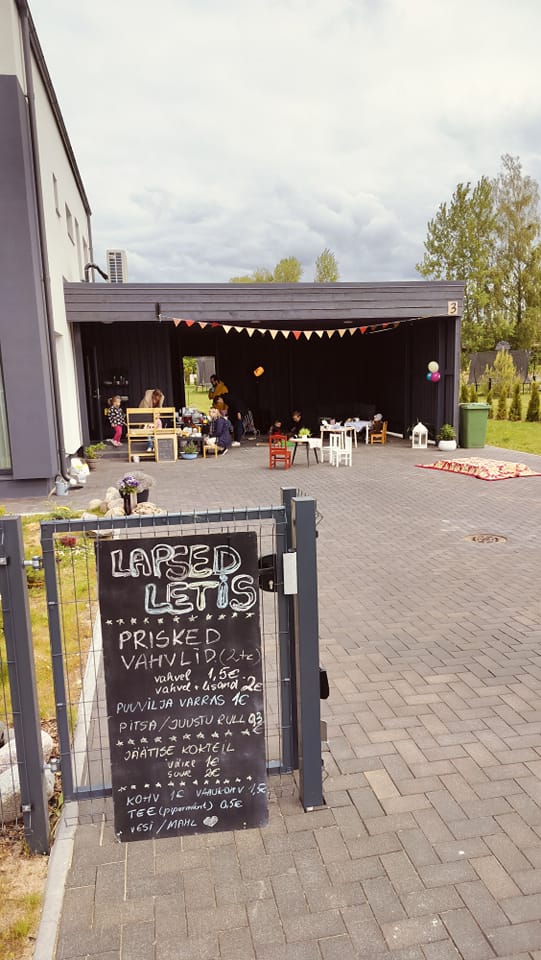 3
LAPSED
LETIS
PRISKED
VAHVLID (2tk)
vahvel 1,5€
vahvel + lisand 2€
PUUVILJA VARRAS 1€
PITSA/JUUSTU RULL
JÄÄTISE KOKTEIL
väike 1€
suur 2€
KOHV 1€ VAHUKOHV 1,5€
TEE (piparmünt) 0,5€
VESI/MAHL